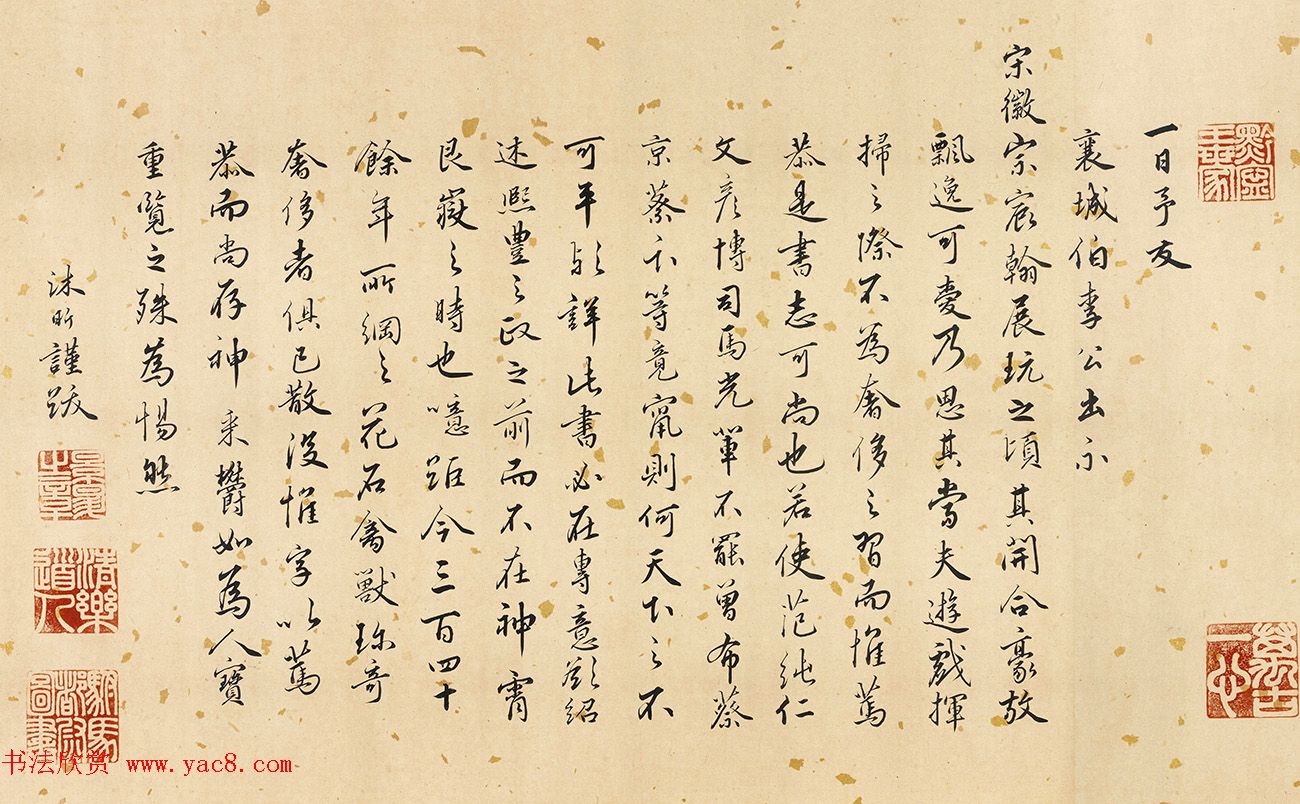 一日予友
襄城伯李公出示
宋徽宗宸翰展玩之頃其開合豪放
飄逸可愛乃思其當夫遊戲揮
掃之際不為奢侈之習而惟篤
恭是書志可尚也若使范純仁
文彥博司馬光輩不罷曾布蔡
京蔡卞等竟竄則何天下之不
可平歟詳此書必在專意欲紹
述熙豐之政之前而不在神霄
艮嶽之時也噫距今三百四十
餘年所綱之花石禽獸珎奇
奢侈者俱已散没惟字以篤
恭而尚存神采欝如為人寶
重覽之殊為惕然
沐昕謹跋
浩樂道人
駙馬都尉圖書
萬古一心
书法欣赏 www.yac8.com